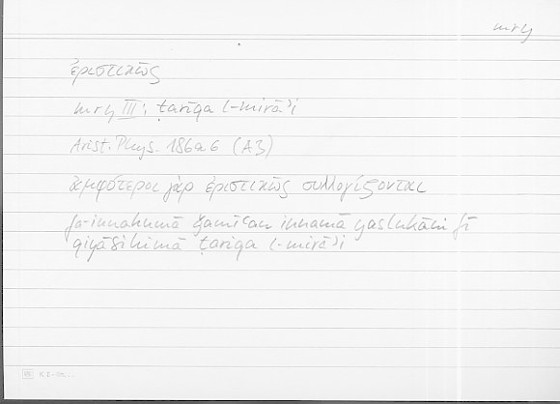 mry
ἐριστικῶς
mry III: ṭarīqa l-mirāʾi
Arist. Phys. 186a6 (A3)
ἀμφότεροι γὰρ ἐριστικῶς συλλογίζονται
fa-innahumā ǧamīʿan innamā yaslukāni fī
qiyāsihimā ṭarīqa l-mirāʾi